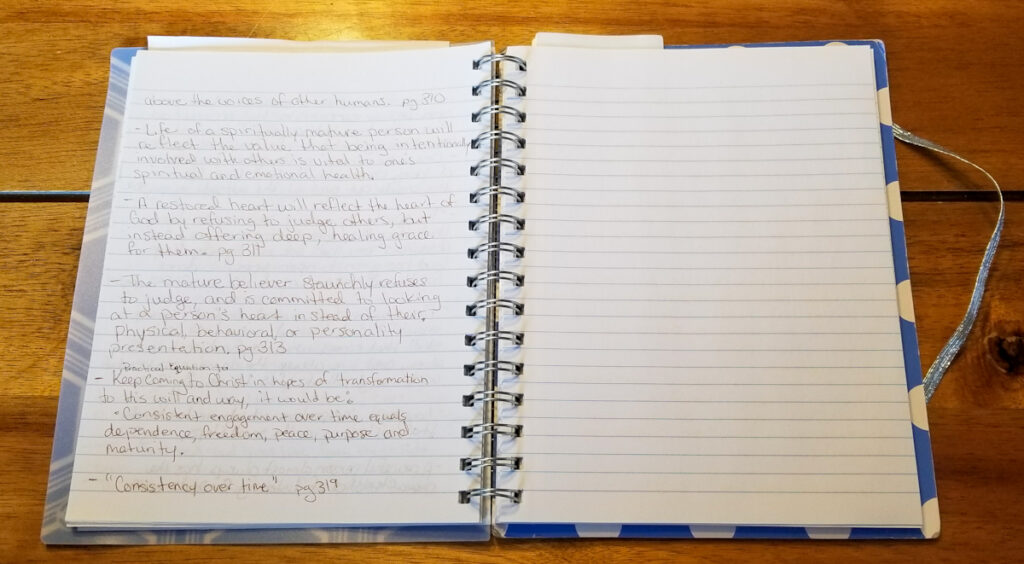 above the voices of other humans. pg 310
- Life of a spiritually mature person will
reflect the value that being intentionally
involved with others is vital to ones
spiritual and emotional health.
- A restored heart will reflect the heart of
God by refusing to judge others, but
instead offering deep, healing grace
for them. pg 311
- The mature believer staunchly refuses
to judge, and is committed to looking
at a person's heart instead of their
physical, behavioral, or personality
presentation. pg 313
Practical Equation to
- Keep coming to Christ in hopes of transformation
to this will and way, it would be:
"Consistent engagement over time equals
dependence, freedom, peace, purpose and
maturity.
- "Consistency over time" pg 319